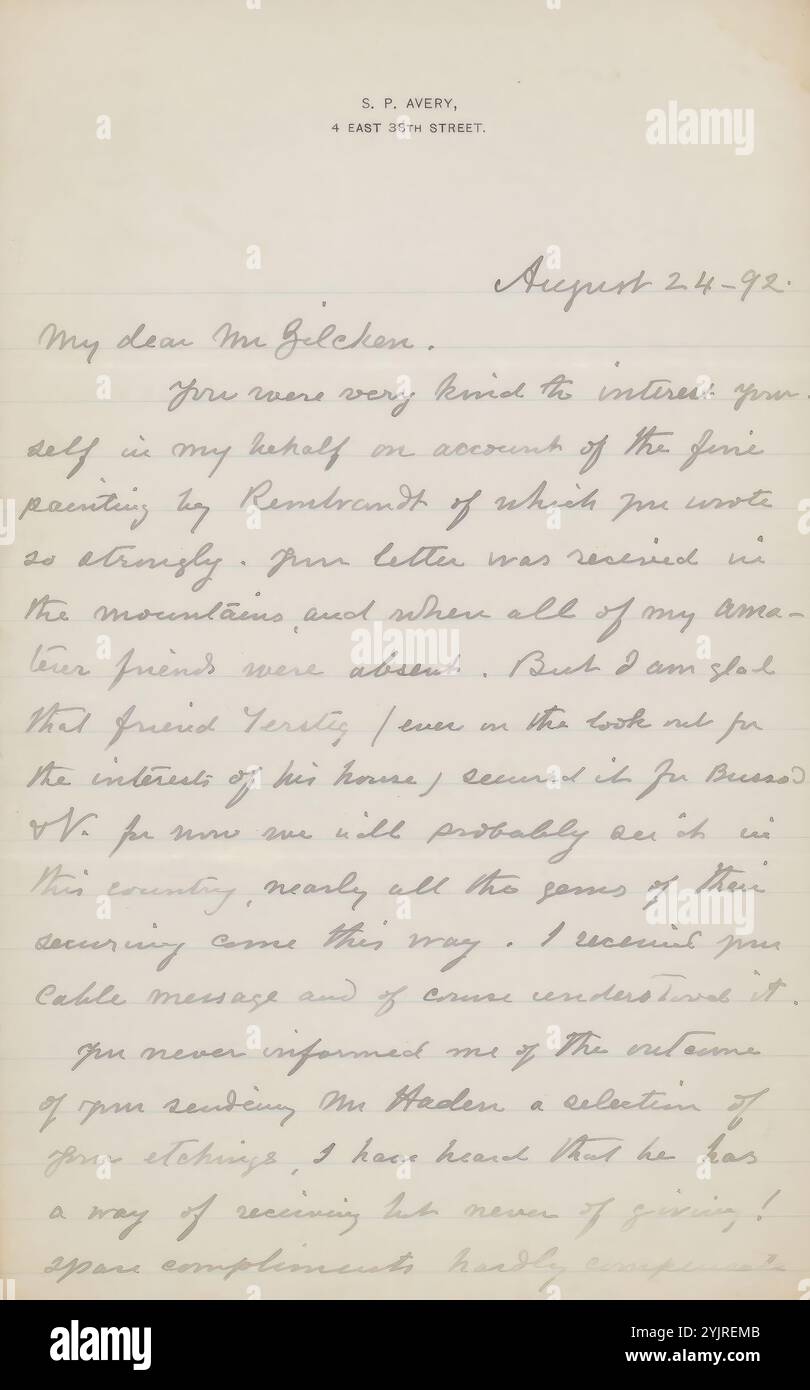 S. P. AVERY,
4 EAST 38TH STREET.
August 24-92.
My dear Mr Zilcken.
You were very kind to interest your-
self in my behalf on account of the fine
painting by Rembrandt of which you wrote
so strongly. Your letter was received in
the mountains, and when all of my ama-
teur friends were absent. But I am glad
that friend Tersteg (ever on the look out for
the interests of his house) secured it for Bussod
& V. for now we will probably see it in
this country, nearly all the gems of their
securing come this way. I received your
Cable message and of course understood it.
You never informed me of the outcome
of your sending Mr Haden a selection of
your etchings, I have heard that he has
a way of receiving but never of giving!
spare compliments hardly compensate
alamy
alamy
alamy
a
a
a
a
a
a
alamy
Image ID: 2YJREMB
www.alamy.com